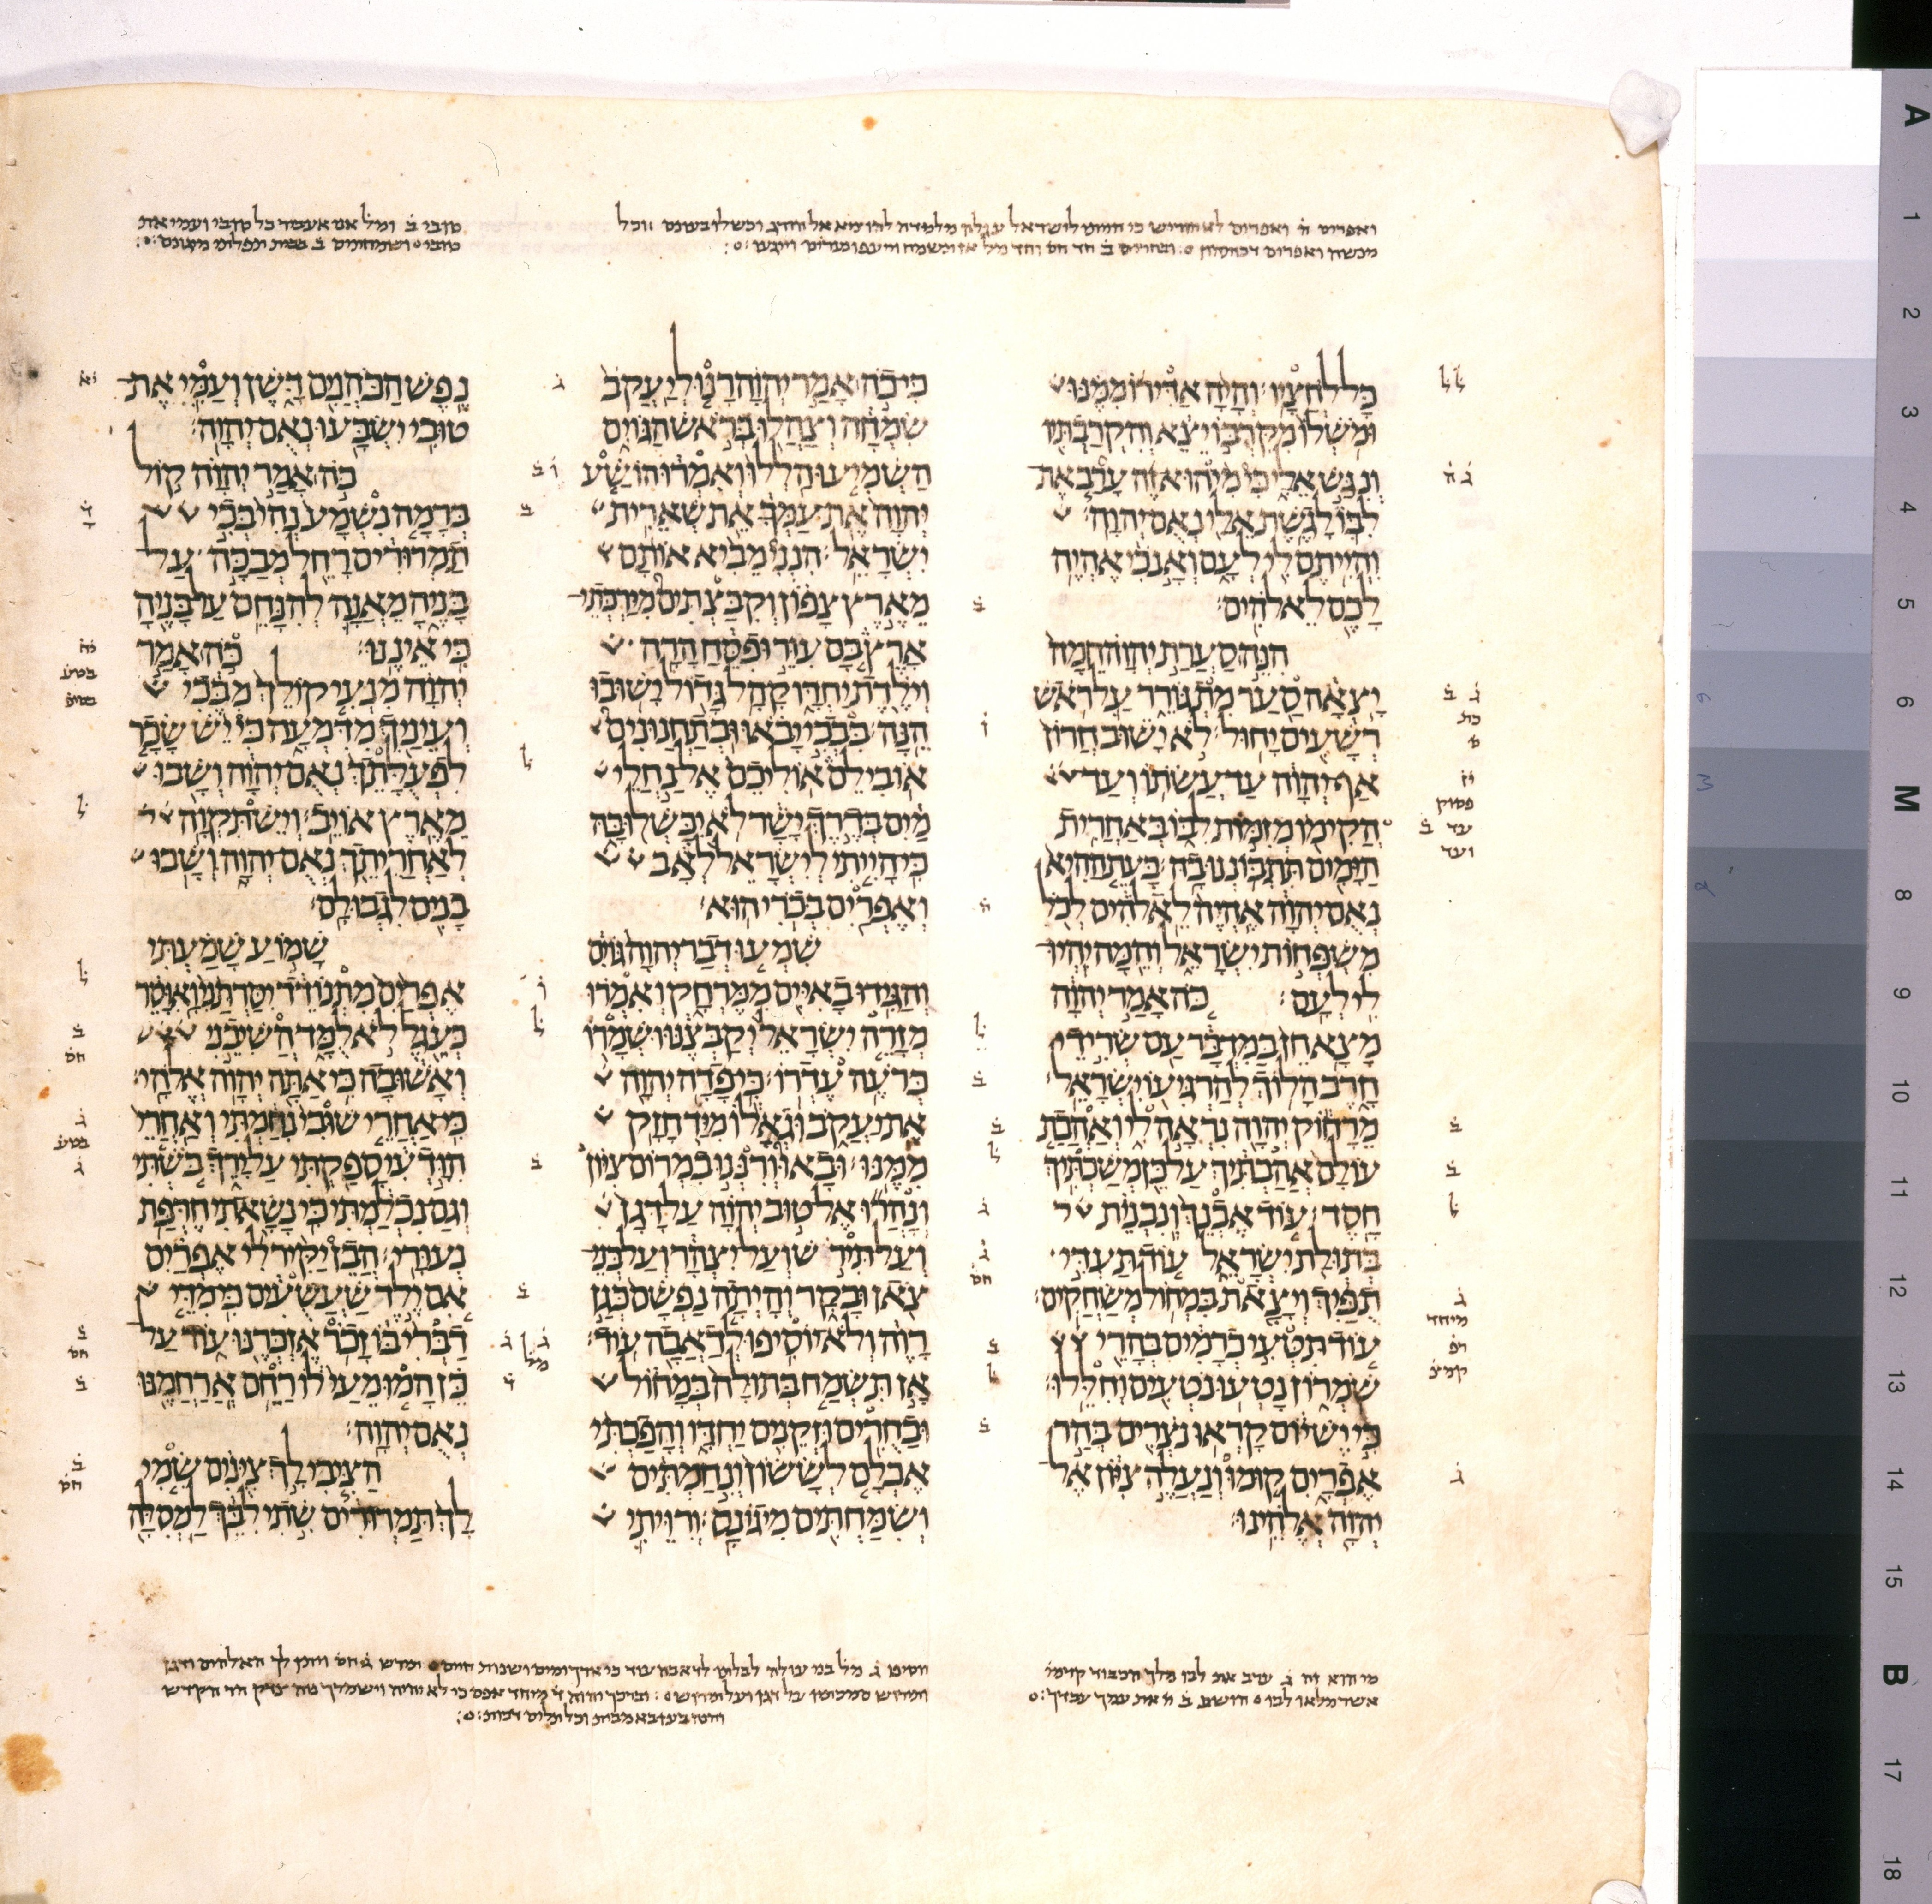 ואפרים לישראל עגלה מלמדה
טובי ב
כָּל לֹחֲצָיו וְהָיָה אַדִּירוֹ מִמֶּנּוּ
וּמֹשְׁלוֹ מִקִּרְבּוֹ יֵצֵא וְהִקְרַבְתִּיו
וְנִגַּשׁ אֵלָי כִּי מִי הוּא זֶה עָרַב אֶת
לִבּוֹ לָגֶשֶׁת אֵלַי נְאֻם יְהוָה׃
וִהְיִיתֶם לִי לְעָם וְאָנֹכִי אֶהְיֶה
לָכֶם לֵאלֹהִים׃
הִנֵּה סַעֲרַת יְהוָה חֵמָה
יָצְאָה סַעַר מִתְגּוֹרֵר עַל רֹאשׁ
רְשָׁעִים יָחוּל׃ לֹא יָשׁוּב חֲרוֹן
אַף יְהוָה עַד עֲשֹׂתוֹ וְעַד
הֲקִימוֹ מְזִמּוֹת לִבּוֹ בְּאַחֲרִית
הַיָּמִים תִּתְבּוֹנְנוּ בָהּ׃ בָּעֵת הַהִיא
נְאֻם יְהוָה אֶהְיֶה לֵאלֹהִים לְכֹל
מִשְׁפְּחוֹת יִשְׂרָאֵל וְהֵמָּה יִהְיוּ
לִי לְעָם׃ כֹּה אָמַר יְהוָה
מָצָא חֵן בַּמִּדְבָּר עַם שְׂרִידֵי
חָרֶב הָלוֹךְ לְהַרְגִּיעוֹ יִשְׂרָאֵל׃
מֵרָחוֹק יְהוָה נִרְאָה לִי וְאַהֲבַת
עוֹלָם אֲהַבְתִּיךְ עַל כֵּן מְשַׁכְתִּיךְ
חָסֶד׃ עוֹד אֶבְנֵךְ וְנִבְנֵית
בְּתוּלַת יִשְׂרָאֵל עוֹד תַּעְדִּי
תֻפַּיִךְ וְיָצָאת בִּמְחוֹל מְשַׂחֲקִים׃
עוֹד תִּטְּעִי כְרָמִים בְּהָרֵי
שֹׁמְרוֹן נָטְעוּ נֹטְעִים וְחִלֵּלוּ׃
כִּי יֶשׁ יוֹם קָרְאוּ נֹצְרִים בְּהַר
אֶפְרָיִם קוּמוּ וְנַעֲלֶה צִיּוֹן אֶל
יְהוָה אֱלֹהֵינוּ׃
כִּי כֹה אָמַר יְהוָה רָנּוּ לְיַעֲקֹב
שִׂמְחָה וְצַהֲלוּ בְּרֹאשׁ הַגּוֹיִם
הַשְׁמִיעוּ הַלְלוּ וְאִמְרוּ הוֹשַׁע
יְהוָה אֶת עַמְּךָ אֵת שְׁאֵרִית
יִשְׂרָאֵל׃ הִנְנִי מֵבִיא אוֹתָם
מֵאֶרֶץ צָפוֹן וְקִבַּצְתִּים מִיַּרְכְּתֵי
אָרֶץ בָּם עִוֵּר וּפִסֵּחַ הָרָה
וְיֹלֶדֶת יַחְדָּו קָהָל גָּדוֹל יָשׁוּבוּ
הֵנָּה׃ בִּבְכִי יָבֹאוּ וּבְתַחֲנוּנִים
אוֹבִילֵם אוֹלִיכֵם אֶל נַחֲלֵי
מַיִם בְּדֶרֶךְ יָשָׁר לֹא יִכָּשְׁלוּ בָּהּ
כִּי הָיִיתִי לְיִשְׂרָאֵל לְאָב
וְאֶפְרַיִם בְּכֹרִי הוּא׃
שִׁמְעוּ דְבַר יְהוָה גּוֹיִם
וְהַגִּידוּ בָאִיִּים מִמֶּרְחָק וְאִמְרוּ
מְזָרֵה יִשְׂרָאֵל יְקַבְּצֶנּוּ וּשְׁמָרוֹ
כְּרֹעֶה עֶדְרוֹ׃ כִּי פָדָה יְהוָה
אֶת יַעֲקֹב וּגְאָלוֹ מִיַּד חָזָק
מִמֶּנּוּ׃ וּבָאוּ וְרִנְּנוּ בִמְרוֹם צִיּוֹן
וְנָהֲרוּ אֶל טוּב יְהוָה עַל דָּגָן
וְעַל תִּירֹשׁ וְעַל יִצְהָר וְעַל בְּנֵי
צֹאן וּבָקָר וְהָיְתָה נַפְשָׁם כְּגַן
רָוֶה וְלֹא יוֹסִיפוּ לְדַאֲבָה עוֹד׃
אָז תִּשְׂמַח בְּתוּלָה בְּמָחוֹל
וּבַחֻרִים וּזְקֵנִים יַחְדָּו וְהָפַכְתִּי
אֶבְלָם לְשָׂשׂוֹן וְנִחַמְתִּים
וְשִׂמַּחְתִּים מִיגוֹנָם׃ וְרִוֵּיתִי
נֶפֶשׁ הַכֹּהֲנִים דָּשֶׁן וְעַמִּי אֶת
טוּבִי יִשְׂבָּעוּ נְאֻם יְהוָה׃
כֹּה אָמַר יְהוָה קוֹל
בְּרָמָה נִשְׁמָע נְהִי בְּכִי
תַמְרוּרִים רָחֵל מְבַכָּה עַל
בָּנֶיהָ מֵאֲנָה לְהִנָּחֵם עַל בָּנֶיהָ
כִּי אֵינֶנּוּ׃ כֹּה אָמַר
יְהוָה מִנְעִי קוֹלֵךְ מִבֶּכִי
וְעֵינַיִךְ מִדִּמְעָה כִּי יֵשׁ שָׂכָר
לִפְעֻלָּתֵךְ נְאֻם יְהוָה וְשָׁבוּ
מֵאֶרֶץ אוֹיֵב׃ וְיֵשׁ תִּקְוָה
לְאַחֲרִיתֵךְ נְאֻם יְהוָה וְשָׁבוּ
בָנִים לִגְבוּלָם׃
שָׁמוֹעַ שָׁמַעְתִּי
אֶפְרַיִם מִתְנוֹדֵד יִסַּרְתַּנִי וָאִוָּסֵר
כְּעֵגֶל לֹא לֻמָּד הֲשִׁיבֵנִי
וְאָשׁוּבָה כִּי אַתָּה יְהוָה אֱלֹהָי׃
כִּי אַחֲרֵי שׁוּבִי נִחַמְתִּי וְאַחֲרֵי
הִוָּדְעִי סָפַקְתִּי עַל יָרֵךְ בֹּשְׁתִּי
וְגַם נִכְלַמְתִּי כִּי נָשָׂאתִי חֶרְפַּת
נְעוּרָי׃ הֲבֵן יַקִּיר לִי אֶפְרַיִם
אִם יֶלֶד שַׁעֲשֻׁעִים כִּי מִדֵּי
דַבְּרִי בּוֹ זָכֹר אֶזְכְּרֶנּוּ עוֹד עַל
כֵּן הָמוּ מֵעַי לוֹ רַחֵם אֲרַחֲמֶנּוּ
נְאֻם יְהוָה׃
הַצִּיבִי לָךְ צִיֻּנִים שִׂמִי
לָךְ תַּמְרוּרִים שִׁתִי לִבֵּךְ לַמְסִלָּה
מי הוא זה ערב את לבו מלך הכבוד
אשר מלאו לבו